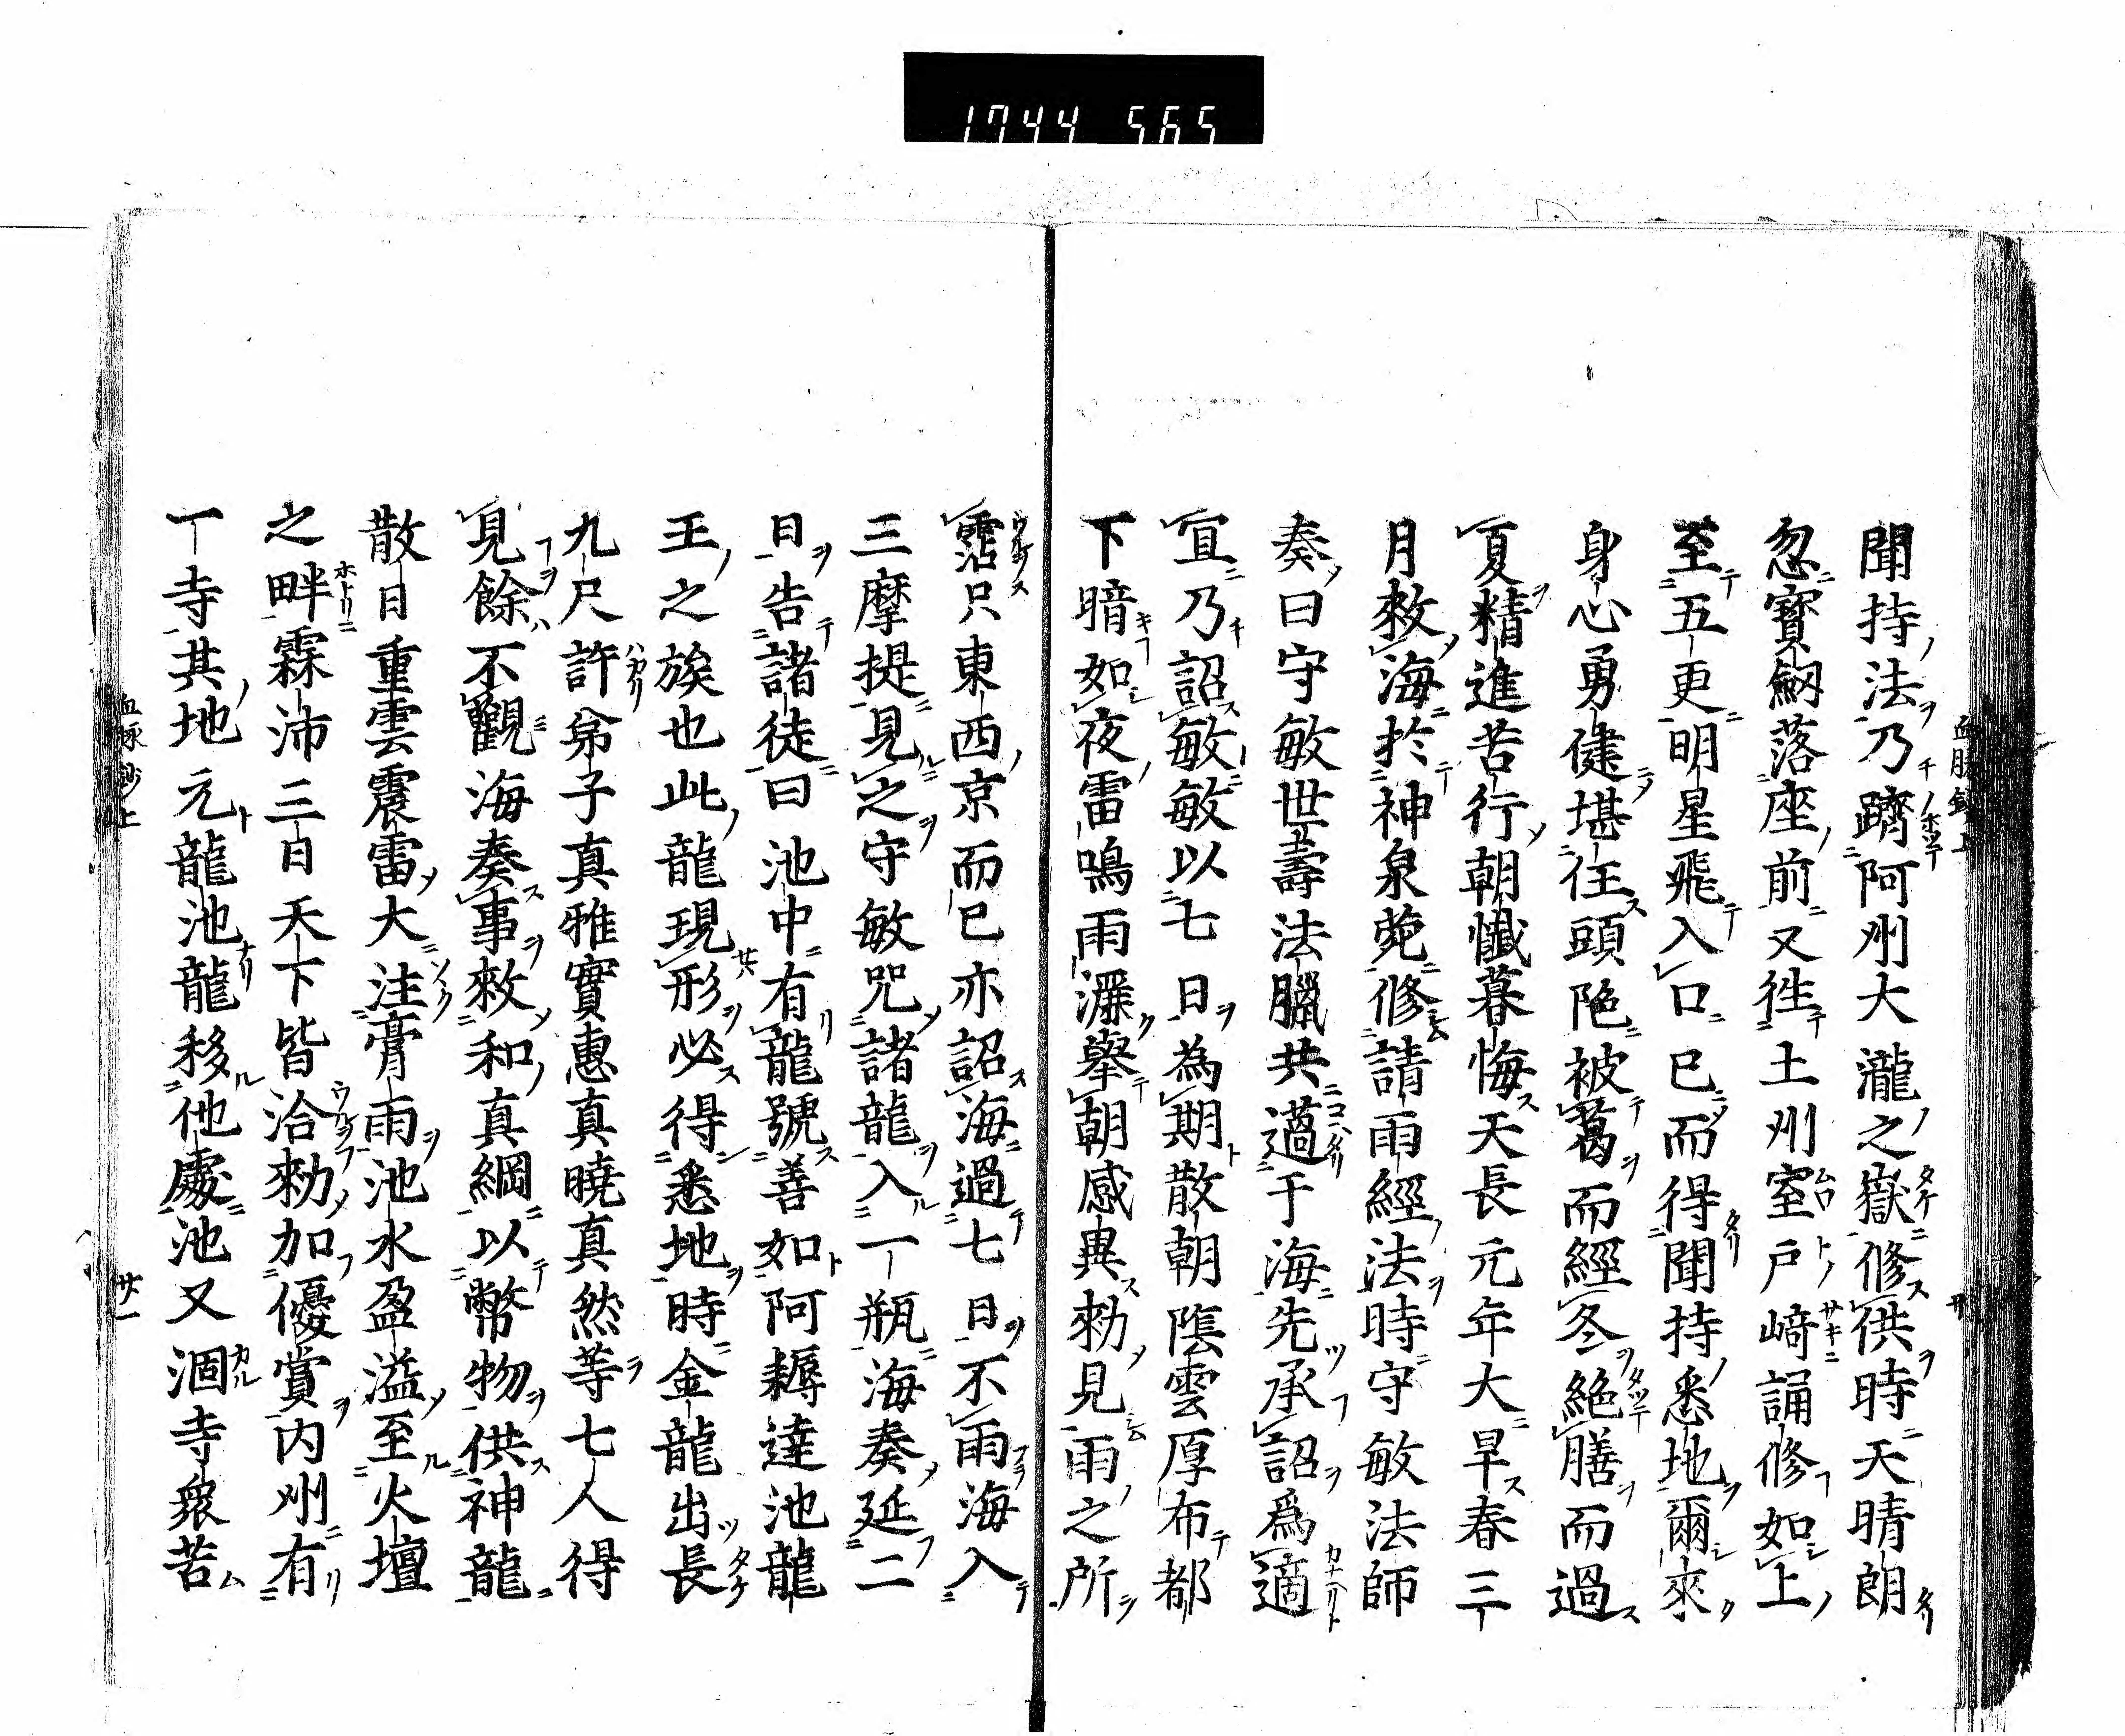 1744 565
聞持法乃躋阿刕大瀧之嶽修供時天晴朗
忽寳劒落座前又徃土刕室戸﨑誦修如上
至五更明星飛入口已而得聞持悉地爾來
身心勇健堪任頭陁被葛而經冬絶膳而過
夏精進苦行朝懺暮悔天長元年大旱春三
月敕海於神泉苑修請雨經法時守敏法師
奏曰守敏世壽法臘共邁于海先承詔爲適
宜乃詔敏敏以七日為期散朝隂雲厚布都
下暗如夜雷鳴雨瀑擧朝感異勑見雨之所
霑只東西京而已亦詔海過七日不雨海入
三摩提見之守敏咒諸龍入一瓶海奏延二
日告諸徒曰池中有龍號善如阿耨達池龍
王之族也此龍現形必得悉地時金龍出長
九尺許弟子真雅實惠真曉真然等七人得
見餘不觀海奏事敕和真綱以幣物供神龍
散日重雲震雷大注膏雨池水盈溢至火壇
之畔霖沛三日天下皆洽勑加優賞内刕有
一寺其地元龍池龍移他處池又涸寺衆苦
血脉鈔上
廿一